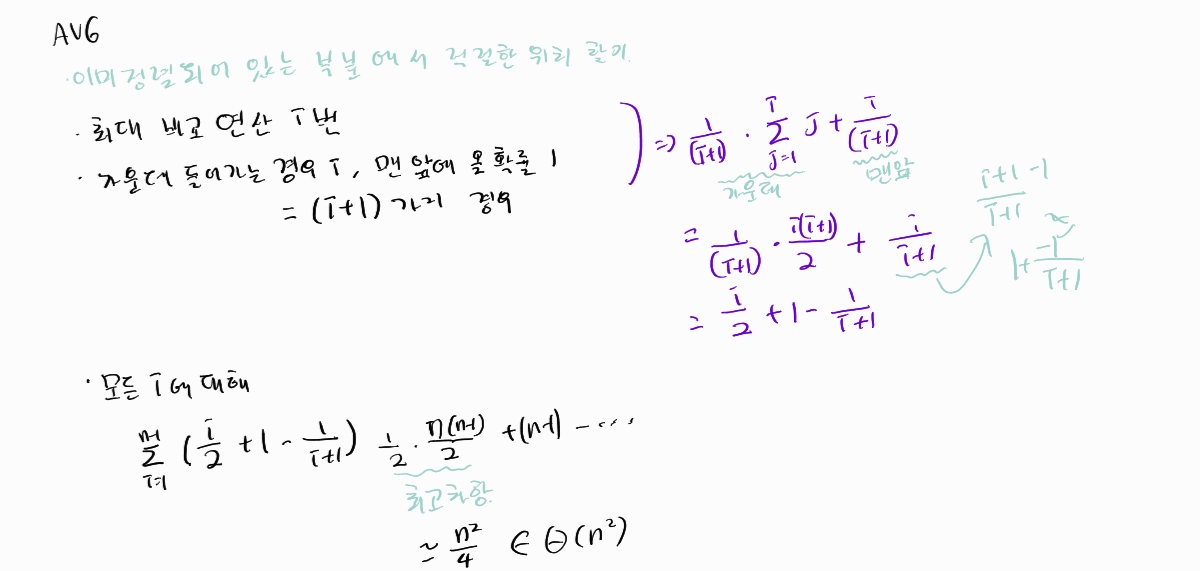 AVG
· 이미 정렬되어 있는 부분에서 적절한 위치 찾기.
· 최대 비교 연산 i번
· 가운데 들어가는 경우 i, 맨 앞에 올 확률 1
= (i+1) 가지 경우
⇒ 1/(i+1) · Σ_{j=1}^{i} j + i/(i+1)
가운데 맨앞
= 1/(i+1) · i(i+1)/2 + i/i+1
i+1-1/i+1
1+ -1/i+1
= i/2 + 1 - 1/i+1
· 모든 i에 대해
Σ_{i=1}^{n-1} (i/2 + 1 - 1/i+1) 1/2 · n(n-1)/2 + (n-1) - ....
최고차항.
≈ n²/4 ∈ Θ(n²)